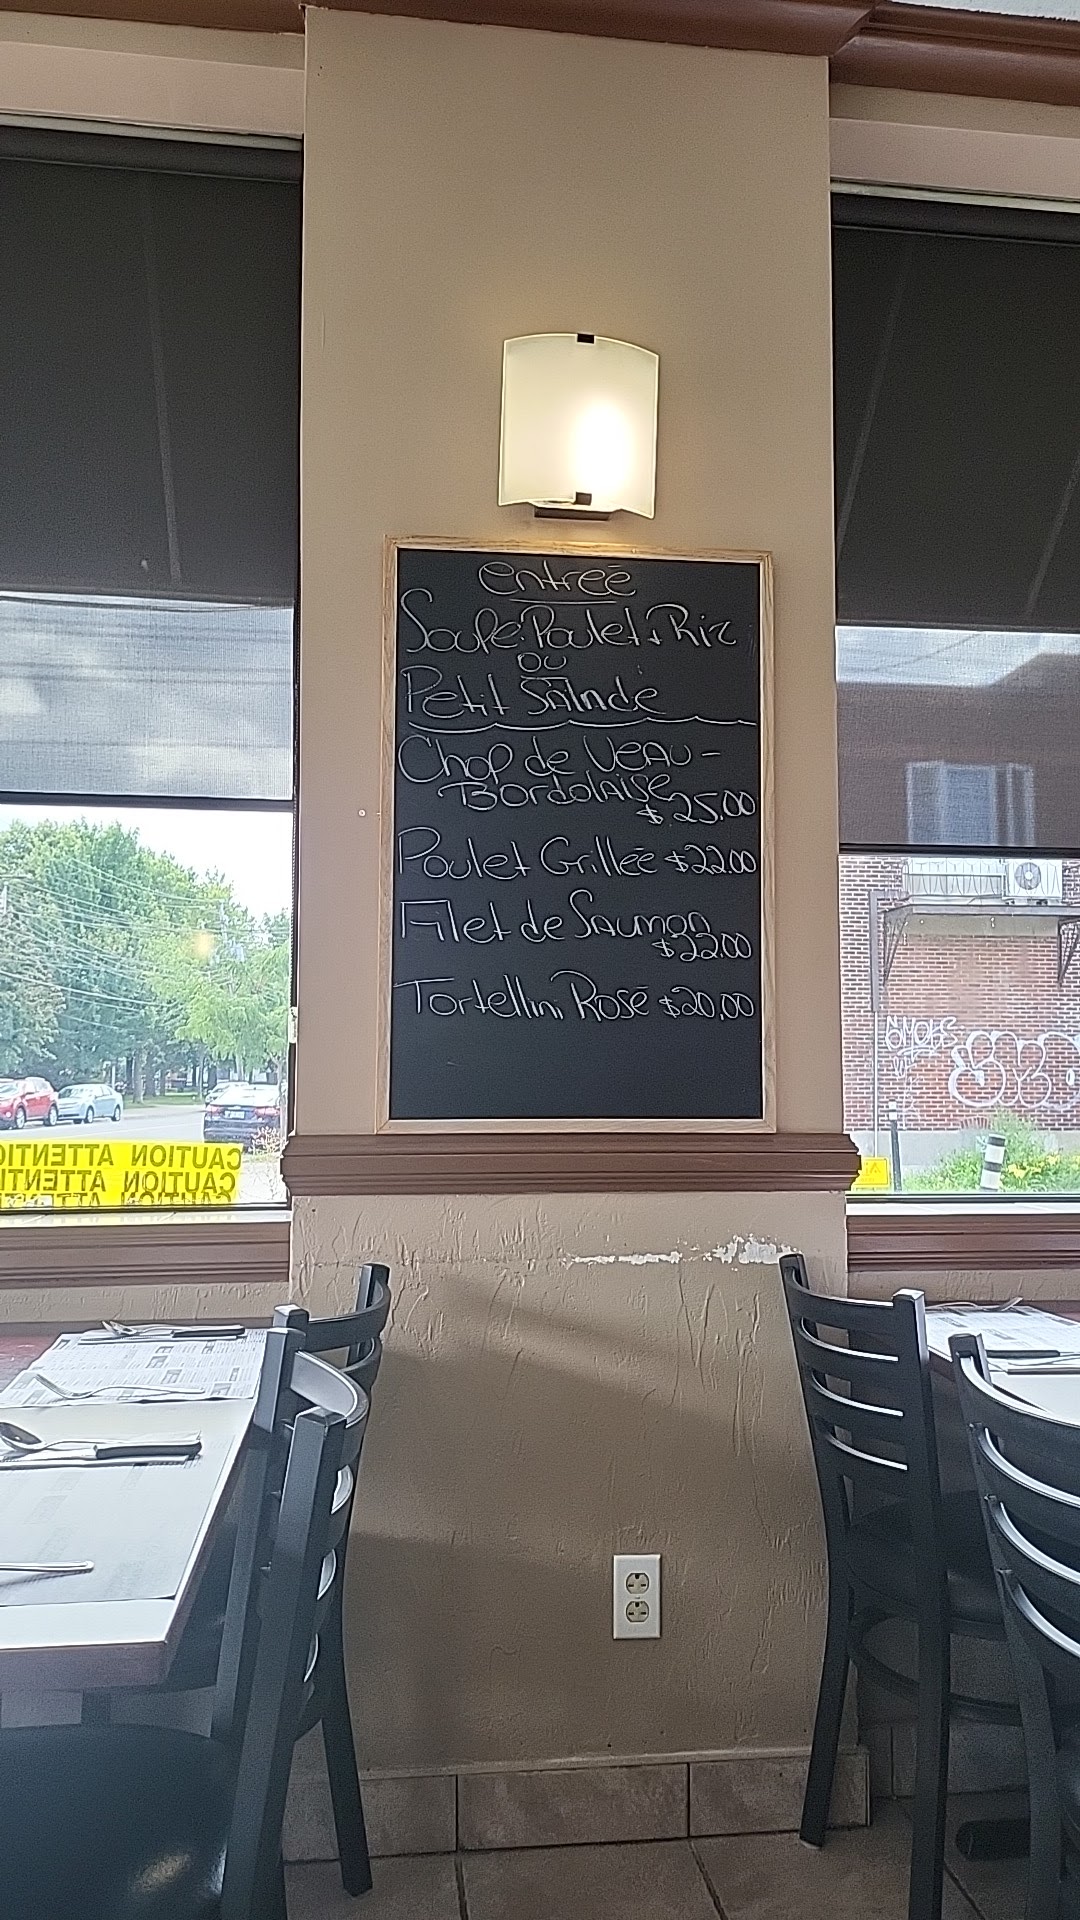 entreé
Soupe: Poulet + Riz
ou
Petit Salade
Chop de Veau -
Bordolaise
$25.00
Poulet Grilleé $22.00
Filet de Saumon
$22.00
Tortellini Rosé $20.00
CAUTION ATTENTION
CAUTION ATTENTI
CAUTION ATTE